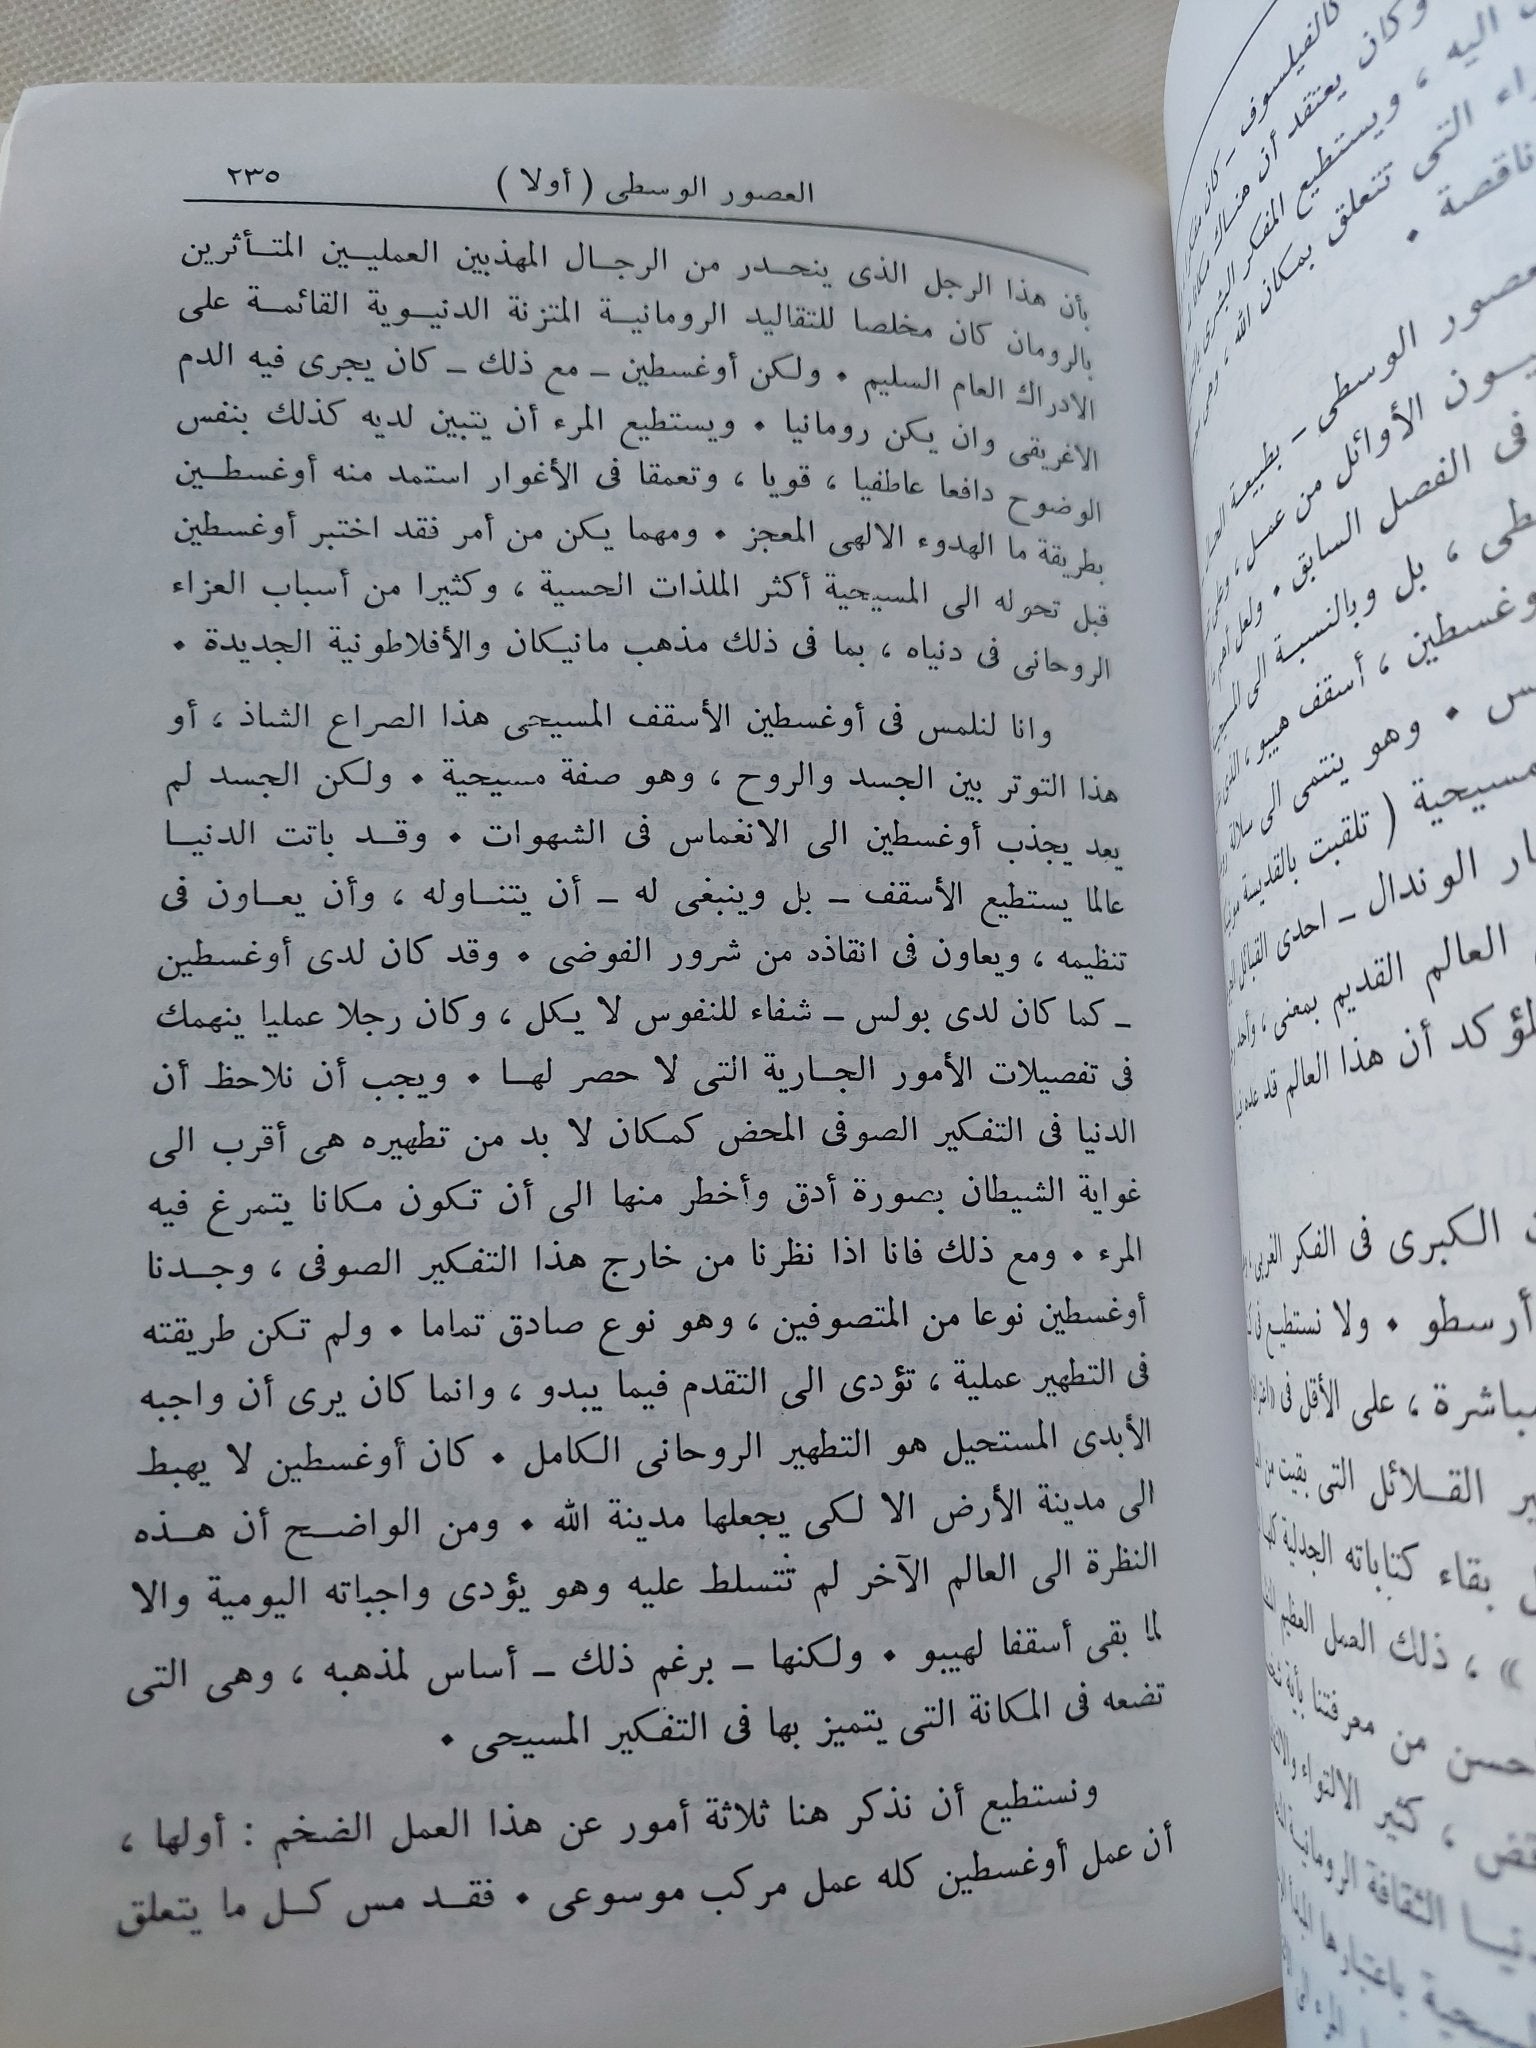 العصور الوسطى ( أولا )
٢٣٥
بأن هذا الرجل الذى ينحـدر من الرجـال المهذبين العمليـين المتـأثرين
بالرومان كان مخلصا للتقاليد الرومانيـة المتزنة الدنيـوية القائمـة على
الادراك العام السليم • ولكن أوغسطين ــ مع ذلك ــ كان يجرى فيه الدم
الاغريقى وان يكن رومانيا • ويستطيع المرء أن يتبين لديه كذلك بنفس
الوضوح دافعا عاطفيا ، قويا ، وتعمقا فى الأغوار استمد منه أوغسطـين
بطريقة ما الهدوء الالهى المعجز • ومهما يكن من أمر فقد اختبر أوغسطين
قبل تحوله الى المسيحية أكثر الملذات الحسية ، وكثيرا من أسباب العزاء
الروحانى فى دنياه ، بما فى ذلك مذهب مانيكان والأفلاطونية الجديدة •
وانا لنلمس فى أوغسطين الأسقف المسيحى هذا الصراع الشاذ ، أو
هذا التوتر بين الجسد والروح ، وهو صفة مسيحية • ولكن الجسد لم
يعد يجذب أوغسطين الى الانغماس فى الشهوات • وقـد باتت الدنيـا
عالما يستطيع الأسقف ــ بل وينبغى له ــ أن يتنـاوله ، وأن يعـاون فى
تنظيمه ، ويعاون فى انقاذد من شرور الفوضى • وقد كان لدى أوغسطين
ــ كما كان لدى بولس ــ شفاء للنفوس لا يكل ، وكان رجلا عمليا ينهمك
فى تفصيلات الأمور الجـارية التى لا حصر لهـا • ويجب أن نلاحظ أن
الدنيا فى التفكير الصوفى المحض كمكان لا بد من تطهيره هى أقرب الى
غواية الشيطان بصورة أدق وأخطر منها الى أن تكون مكانا يتمرغ فيه
المرء • ومع ذلك فانا اذا نظرنا من خارج هذا التفكير الصوفى ، وجـدنا
أوغسطين نوعا من المتصوفين ، وهو نوع صادق تماما • ولم تكن طريقته
فى التطهير عملية ، تؤدى الى التقدم فيما يبدو ، وانما كان يرى أن واجبه
الأبدى المستحيل هو التطهير الروحانى الكامل • كان أوغسطين لا يهبط
الى مدينة الأرض الا لكى يجعلها مدينة الله • ومن الواضـح أن هـذه
النظرة الى العالم الآخر لم تتسلط عليه وهو يؤدى واجباته اليومية والا
لما بقى أسقفا لهيبو • ولكنها ــ برغم ذلك ــ أساس لمذهبه ، وهى التى
تضعه فى المكانة التى يتميز بها فى التفكير المسيحى •
ونستطيع أن نذكر هنا ثلاثة أمور عن هذا العمل الضخم : أولها ،
أن عمل أوغسطين كله عمل مركب موسوعى • فقـد مس كـل ما يتعلق
كالفيلسوف
وكان يعتقد أن هناك
اليه ، ويستطيع المفكر البشرى
التى تتعلق بمكان الله ، وهى
ناقصة •
الوسطى ــ بطبيعة
الأوائل من عمل ،
فى الفصل السابق • ولعل أهم
، بل وبالنسبة الى
، أسقف هيبو ، الذى
• وهو ينتمى الى سلالة
( تلقبت بالقديسة مونيكا
الوندال ــ احدى القبائل
العالم القديم بمعنى ،
أن هذا العالم قد
الكبرى فى الفكر الغربى ،
أرسطو • ولا نستطيع فى
، على الأقل فى
القـلائل التى بقيت من
بقاء كتاباته الجدلية كلها
» ، ذلك العمل العظيم
من معرفتنا بأية
، كثير الالتواء
الثقافة الرومانيـة
باعتبارها